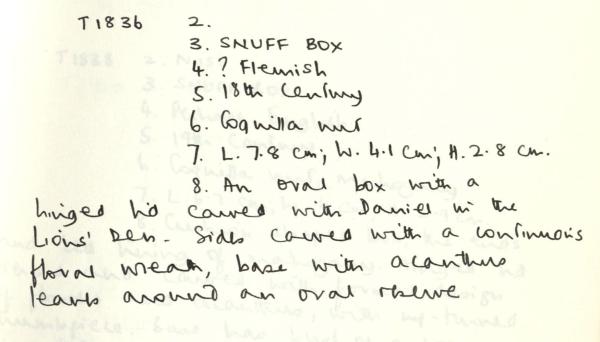 T1836 2.
3. SNUFF BOX
4. ? Flemish
5. 18th Century
6. Coquilla nut
7. L. 7.8 cm; W. 4.1 cm; H. 2.8 cm.
8. An oval box with a
hinged lid carved with Daniel in the
Lions' Den. Sides carved with a continuous
floral wreath, base with acanthus
leaves around an oval reserve